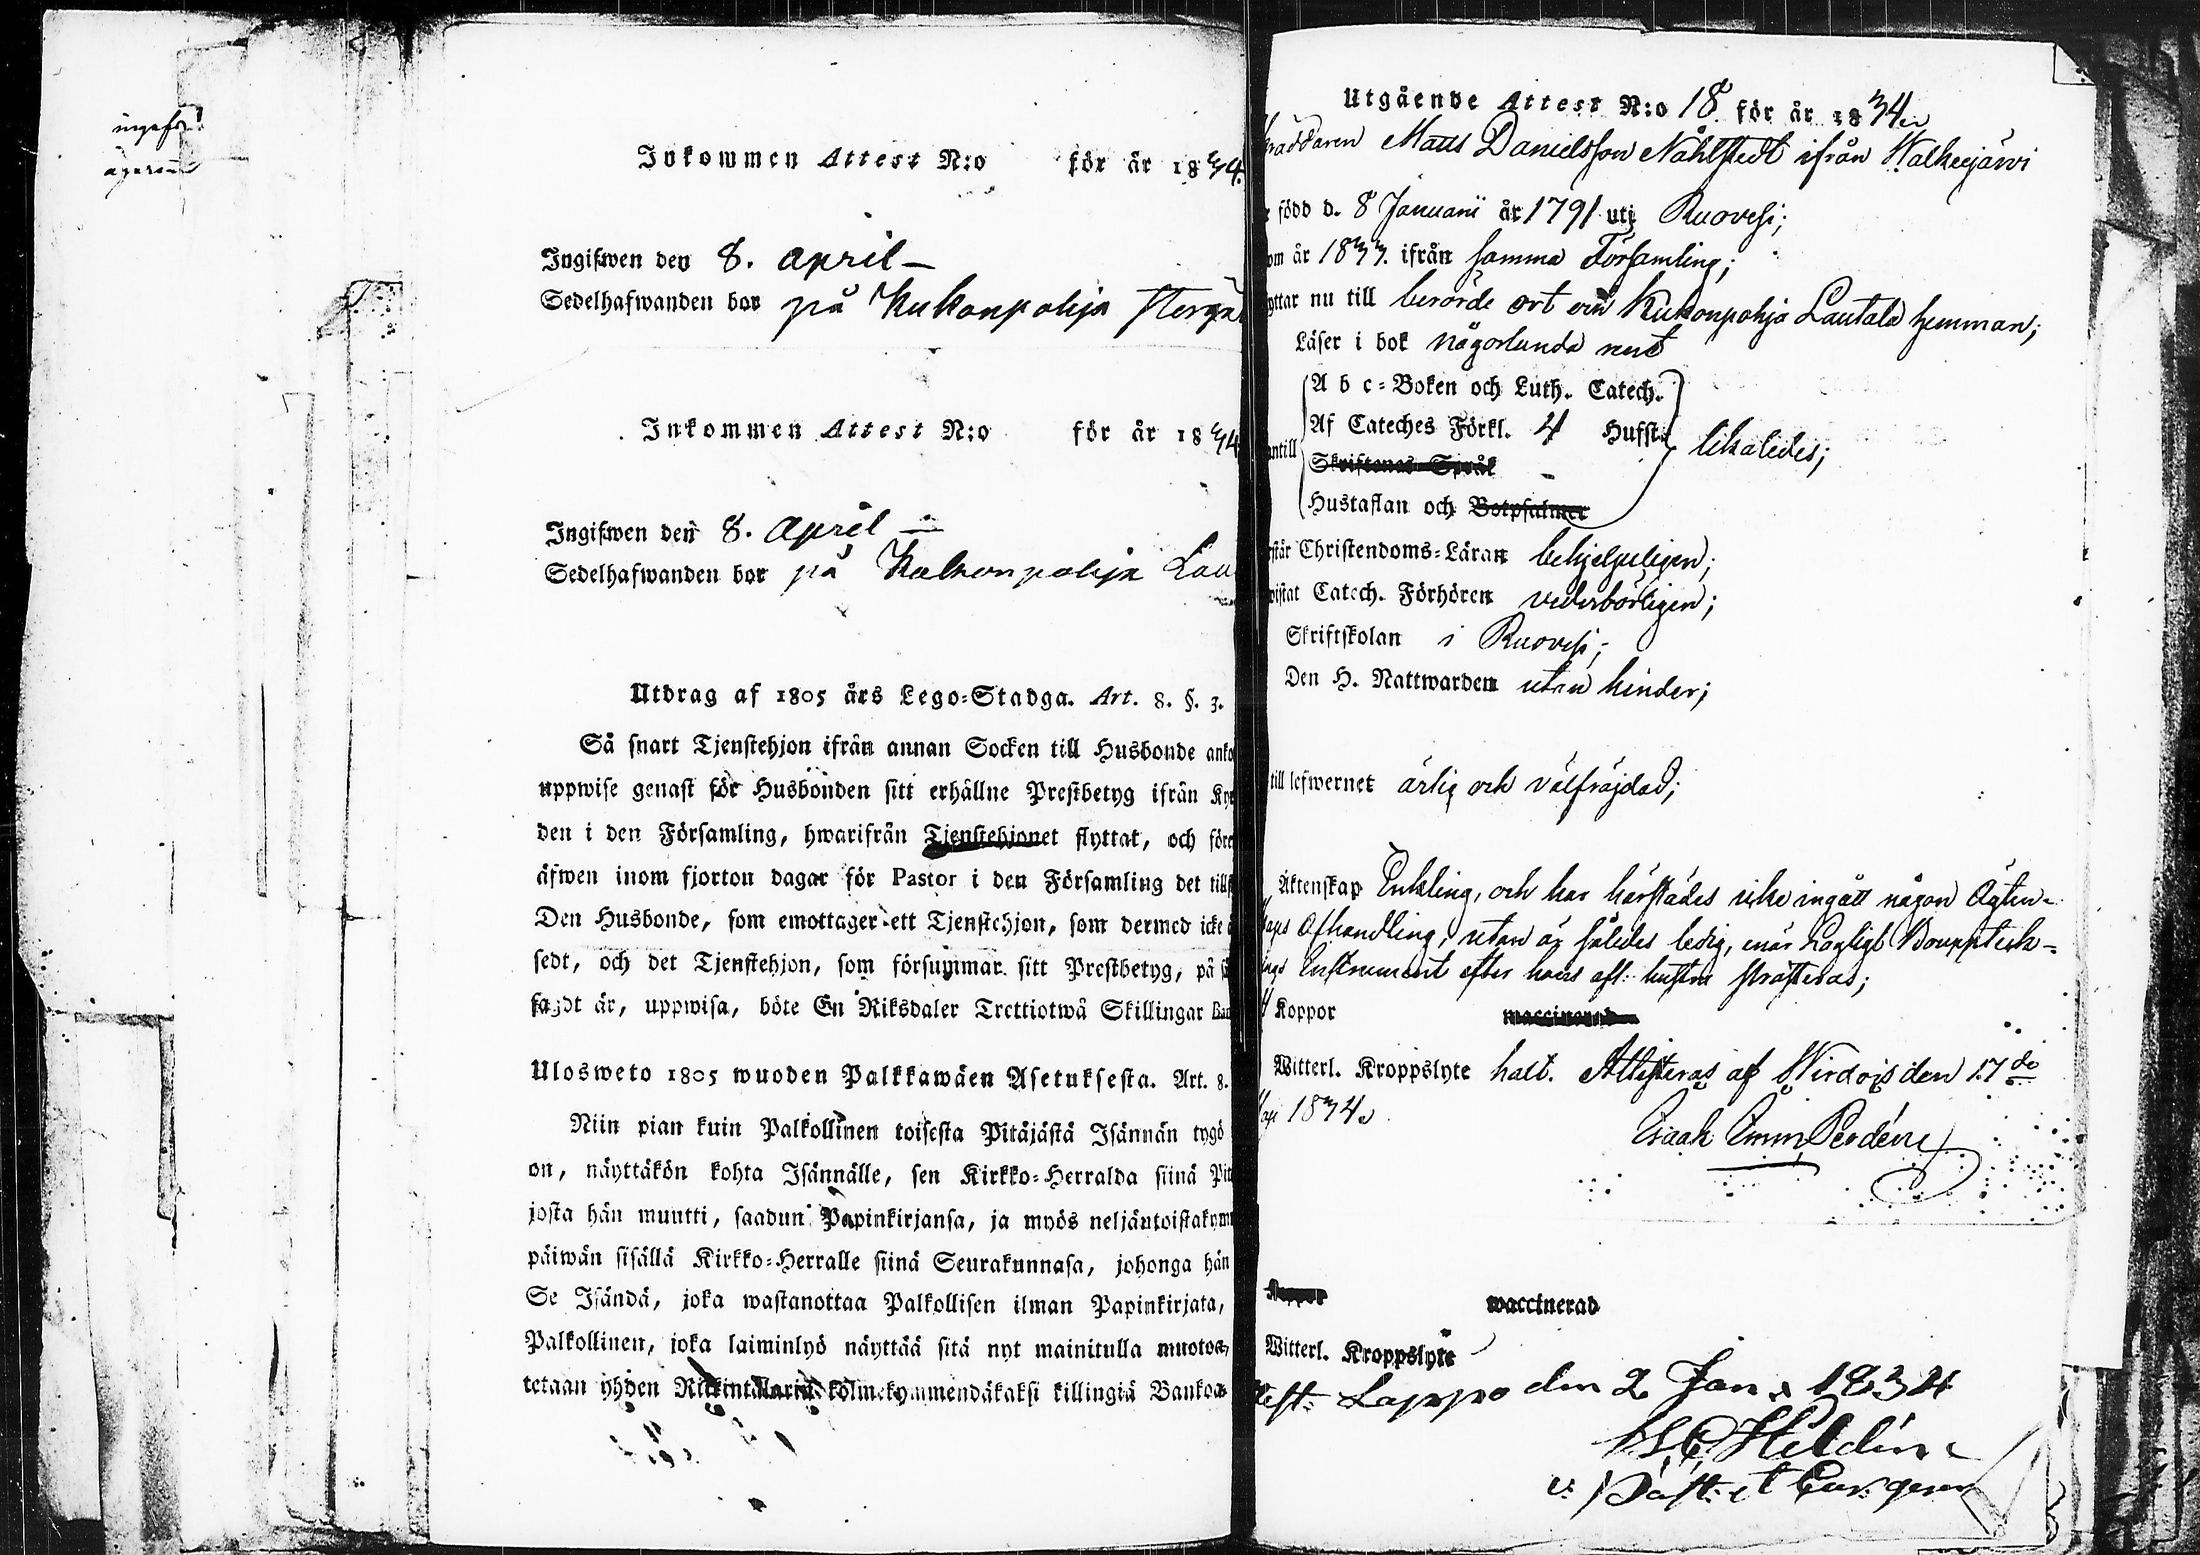 Inkommen Attest N:o för år 1834.
Ingifwen den 8. April
Sedelhafwanden bor på Kukonpohja
Inkommen Attest N:o för år 1834
Ingifwen den 8. April
Sedelhafwanden bor på Kukonpohja Lau
Utdrag af 1805 års Lego-Stadga. Art. 8. §. 3.
Så snart Tjenstehjon ifrån annan Socken till Husbonde anko
uppwise genast för Husbonden sitt erhållne Prestbetyg ifrån Kyr
den i den Församling, hwarifrån Tjenstehjonet flyttat, och före
äfwen inom fjorton dagar för Pastor i den Församling det tills
Den Husbonde, som emottager ett Tjenstehjon, som dermed icke ä
sedt, och det Tjenstehjon, som försummar sitt Prestbetyg, på sä
sagdt är, uppwisa, böte En Riksdaler Trettiotwå Skillingar Ban
Ulosweto 1805 wuoden Palkkawäen Asetuksesta. Art. 8.
Niin pian kuin Palkollinen toisesta Pitäjästä Isännän tygö
on, näyttäkön kohta Isännälle, sen Kirkko-Herralda siinä Pit
josta hän muutti, saadun Papinkirjansa, ja myös neljäntoistakym
päiwän sisällä Kirkko-Herralle siinä Seurakunnasa, johonga hän
Se Isändä, joka wastanottaa Palkollisen ilman Papinkirjata,
Palkollinen, joka laiminlyö näyttää sitä nyt mainitulla muotoa,
tetaan yhden Riikintallarin kolmekymmendäkaksi killingiä Bankoa
Utgående Attest N:o 18. för år 1834
kräddaren Matts Danielsson Nåhlstedt ifrån Walkeejärwi
född d. 8 Januarii år 1791 uti Ruovesi;
om år 1833. ifrån samma Församling;
yttar nu till berörde ort och Kukonpohja Lautala hemman;
Läser i bok någorlunda rent
A b c-Boken och Luth. Catech.
Af Cateches Förkl. 4 Hufst.
antill Skriftenes Språk likaledes;
Hustaflan och Botpsalmer
står Christendoms-Läran behjelpeligen;
wistat Catech. Förhören vederbörligen;
Skriftskolan i Ruovesi;
Den H. Nattwarden utan hinder;
till lefwernet ärlig och välfräjdad;
Äktenskap Enkling, och har härstädes icke ingått någon Ägten-
skaps Afhandling, utan är således ledig, enär Lagligt Bouppteck-
nings Instrument efter hans afl: hustru företeras;
Koppor vaccinerad
Witterl. Kroppslyte halt. Attesteras af Wirdois den 17de
1834.
Esaah Emm Perdén
Koppor waccinerad
Witterl. Kroppslyte
test: Lappo den 2 Jan. 1834
Heldin
v: Past: et